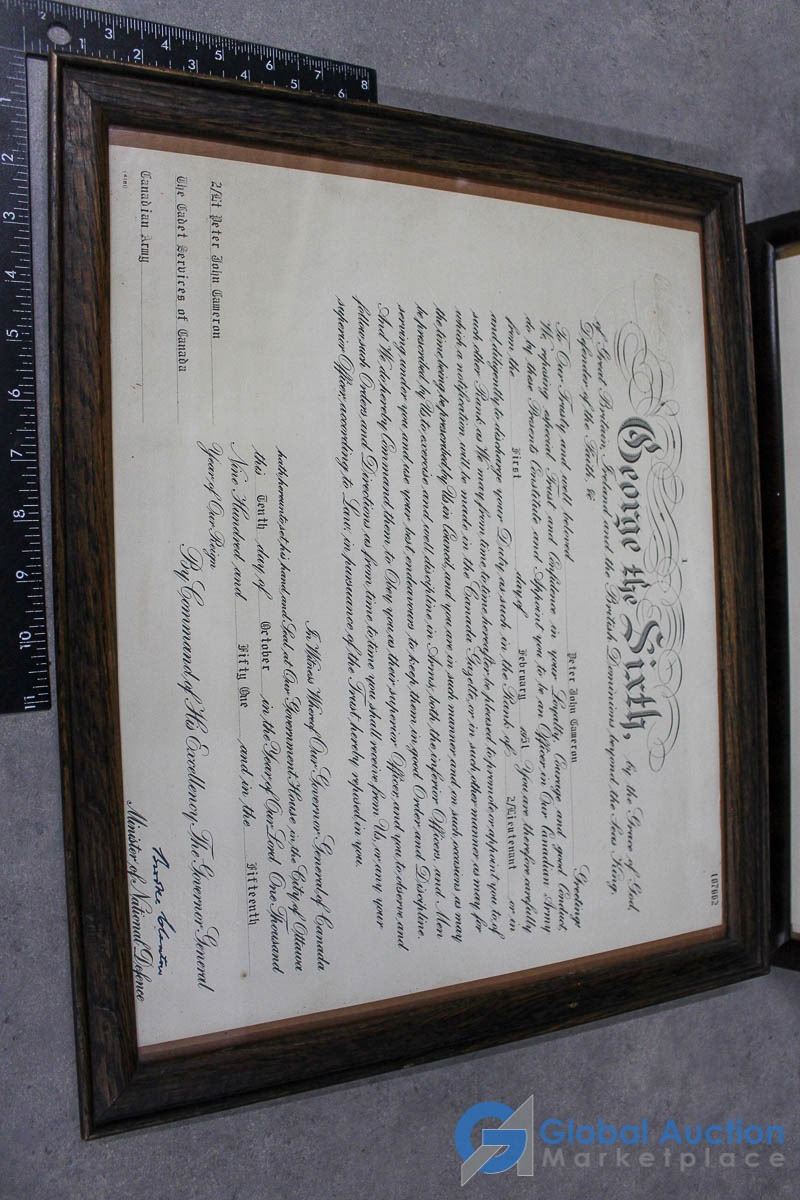 107002
George the Sixth, by the Grace of God,
of Great Britain, Ireland and the British Dominions beyond the Seas King,
Defender of the Faith, &c
To Our Trusty and well beloved Peter John Cameron Greeting:
We reposing especial Trust and Confidence in your Loyalty, Courage and good Conduct,
do by these Presents Constitute and Appoint you to be an Officer in Our Canadian Army
from the First day of February 1951 You are therefore carefully
and diligently to discharge your Duty as such in the Rank of 2/Lieutenant or in
such other Rank as We may from time to time hereafter be pleased to promote or appoint you to, of
which a notification will be made in the Canada Gazette, or in such other manner as may for
the time being be prescribed by Us in Council, and you are in such manner and on such occasions as may
be prescribed by Us to exercise and well discipline in Arms, both the inferior Officers and Men
serving under you and use your best endeavours to keep them in good Order and Discipline,
And We do hereby Command them to Obey you as their superior Officer, and you to observe and
follow such Orders and Directions as from time to time you shall receive from Us, or any your
superior Officer, according to Law, in pursuance of the Trust hereby reposed in you.
In Witness Whereof Our Governor General of Canada
hath hereunto set his hand and Seal, at Our Government House in the City of Ottawa
this Tenth day of October in the Year of Our Lord One Thousand
Nine Hundred and Fifty One and in the Fifteenth
Year of Our Reign
By Command of His Excellency The Governor General
Brooke Claxton
Minister of National Defence
2/Lt Peter John Cameron
The Cadet Services of Canada
Canadian Army
1 2 3 4 5 6 7 8
1 2 3 4 5 6
1 2 3 4 5 6 7 8 9 10 11
Global Auction
Marketplace